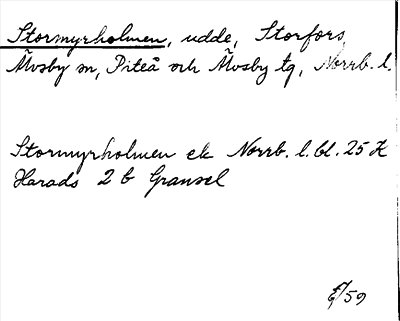 Stormyrholmen, udde, Storfors
Älvsby sn, Piteå och Älvsby tg, Norrb. l.
Stormyrholmen ek Norrb. l. bl. 25 K
Harads 2 b Gransel
59